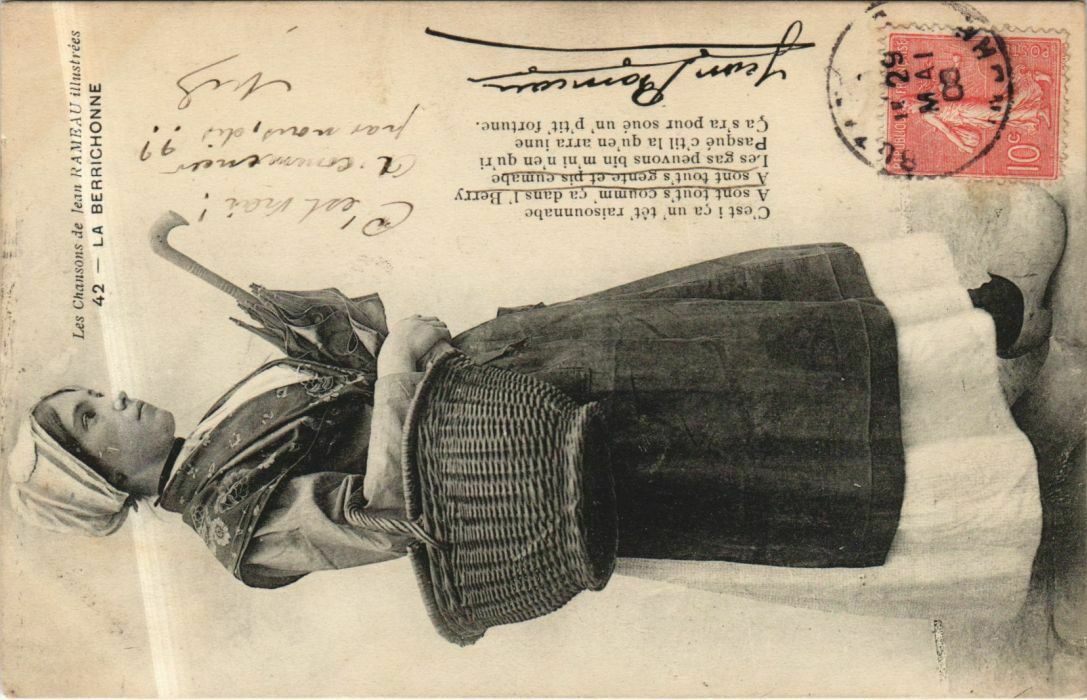 Les Chansons de Jean RAMEAU illustrées
42 — LA BERRICHONNE
C'est i ça un' têt' raisounnabe
A sont tout's coumm' ça dans l' Berry
A sont tout's gente et pis eumabe
Les gas peuvons bin m'ni n'en qu'ri
Pasqué c'til là qu'en arra iune
Ça s'ra pour soué un' p'tit' fortune.
Jean Rameau
C'est vrai !
A coumencer
par nous, dis ??
29
MAI
08
POSTES
10c